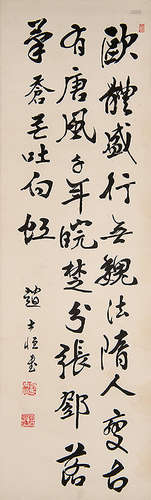 歐體盛行無魏法隋人變古
有唐風千年皖楚分張鄧落
筆蒼茫吐白虹
趙士恆書